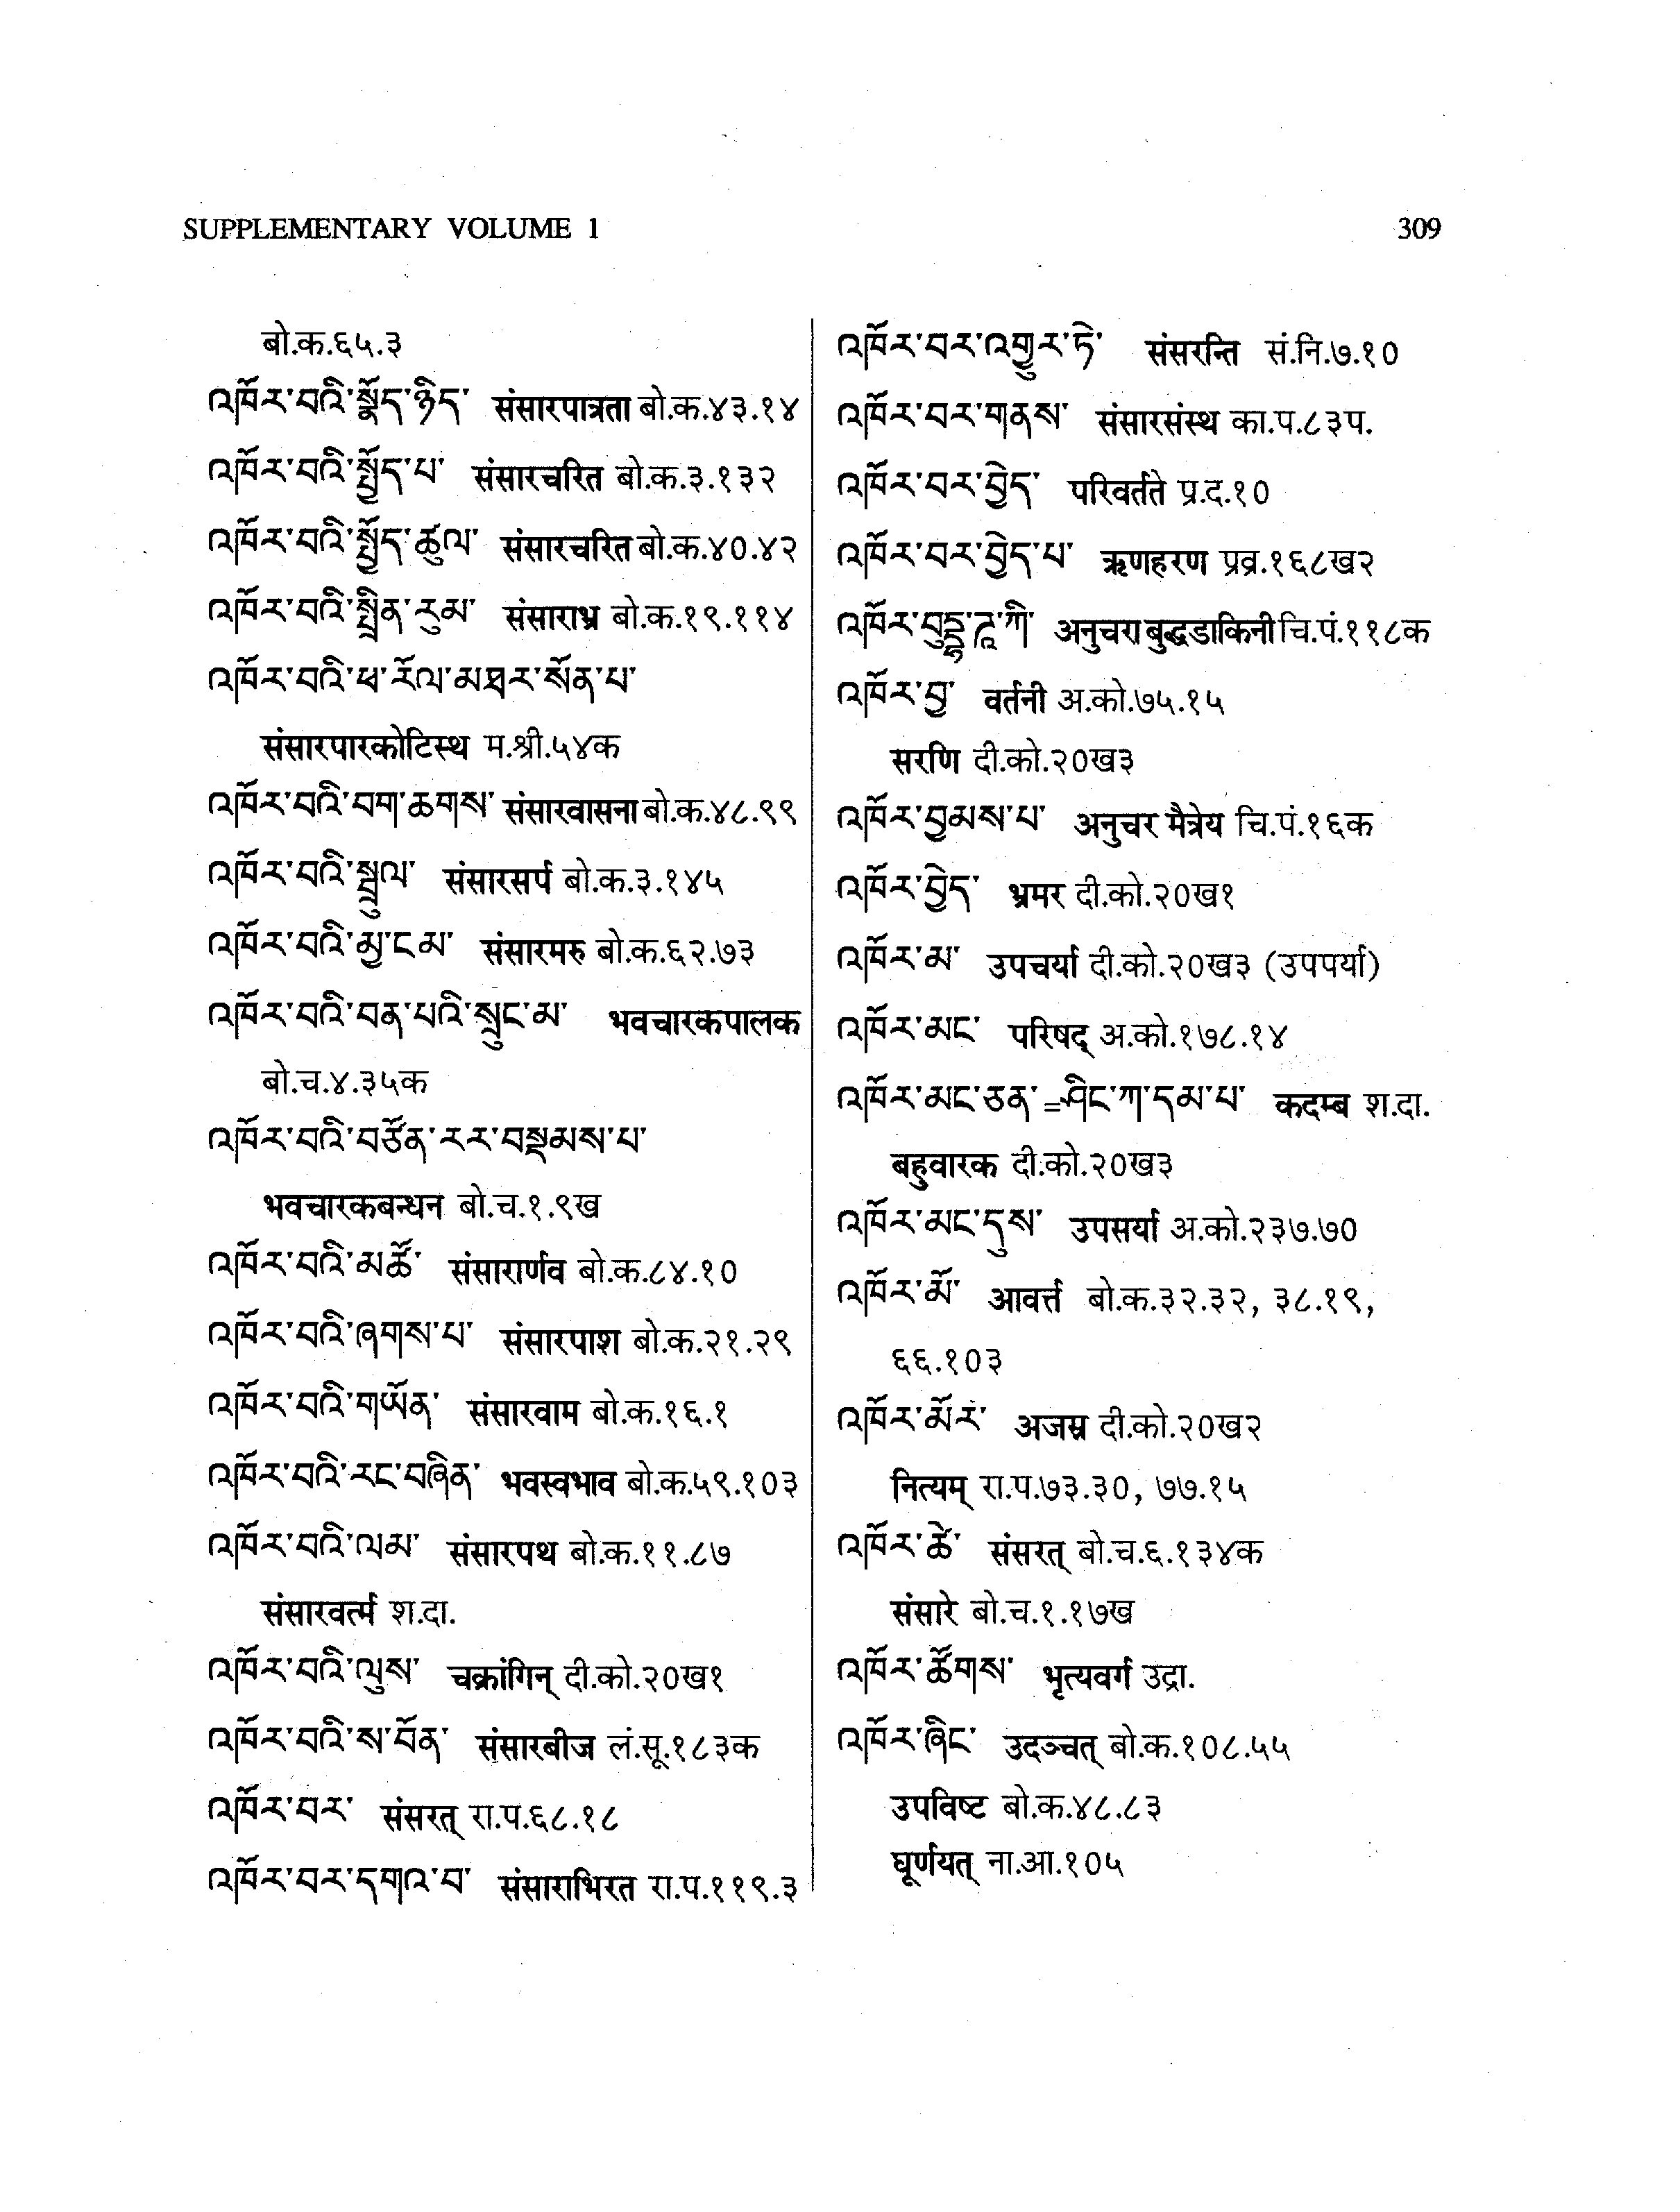 SUPPLEMENTARY VOLUME 1
309
बो.क.६५.३
འཁོར་བའི་སྣོད་ཉིད་ संसारपात्रता बो.क.४३.१४
འཁོར་བའི་སྤྱོད་པ་ संसारचरित बो.क.३.१३२
འཁོར་བའི་སྤྱོད་ཚུལ་ संसारचरित बो.क.४०.४२
འཁོར་བའི་སྤྲིན་རུམ་ संसाराभ्र बो.क.१९.११४
འཁོར་བའི་ཕ་རོལ་མཐར་སོན་པ་
संसारपारकोटिस्थ म.श्री.५४क
འཁོར་བའི་བག་ཆགས་ संसारवासना बो.क.४८.९९
འཁོར་བའི་སྦྲུལ་ संसारसर्प बो.क.३.१४५
འཁོར་བའི་མྱ་ངམ་ संसारमरु बो.क.६२.७३
འཁོར་བའི་བན་པའི་སྲུང་མ་ भवचारकपालक
बो.च.४.३५क
འཁོར་བའི་བཙོན་རར་བསྡམས་པ་
भवचारकबन्धन बो.च.१.९ख
འཁོར་བའི་མཚོ་ संसारार्णव बो.क.८४.१०
འཁོར་བའི་ཞགས་པ་ संसारपाश बो.क.२१.२९
འཁོར་བའི་གཡོན་ संसारवाम बो.क.१६.१
འཁོར་བའི་རང་བཞིན་ भवस्वभाव बो.क.५९.१०३
འཁོར་བའི་ལམ་ संसारपथ बो.क.११.८७
संसारवर्त्म श.दा.
འཁོར་བའི་ལུས་ चक्रांगिन् दी.को.२०ख१
འཁོར་བའི་ས་བོན་ संसारबीज लं.सू.१८३क
འཁོར་བར་ संसरत् रा.प.६८.१८
འཁོར་བར་དགའ་བ་ संसाराभिरत रा.प.११९.३
འཁོར་བར་འགྱུར་ཏེ་ संसरन्ति सं.नि.७.१०
འཁོར་བར་གནས་ संसारसंस्थ का.प.८३प.
འཁོར་བར་བྱེད་ परिवर्तते प्र.द.१०
འཁོར་བར་བྱེད་པ་ ऋणहरण प्रव्र.१६८ख२
འཁོར་བུདྡྷ་ཌཱ་ཀི་ अनुचरा बुद्धडाकिनी चि.पं.११८क
འཁོར་བྱ་ वर्तनी अ.को.७५.१५
सरणि दी.को.२०ख३
འཁོར་བྱམས་པ་ अनुचर मैत्रेय चि.पं.१६क
འཁོར་བྱེད་ भ्रमर दी.को.२०ख१
འཁོར་མ་ उपचर्या दी.को.२०ख३ (उपपर्या)
འཁོར་མང་ परिषद् अ.को.१७८.१४
འཁོར་མང་ཅན་=ཤིང་ཀ་དམ་པ་ कदम्ब श.दा.
बहुवारक दी.को.२०ख३
འཁོར་མང་དུས་ उपसर्या अ.को.२३७.७०
འཁོར་མོ་ आवर्त्त बो.क.३२.३२, ३८.१९,
६६.१०३
འཁོར་མོར་ अजस्र दी.को.२०ख२
नित्यम् रा.प.७३.३०, ७७.१५
འཁོར་ཚེ་ संसरत् बो.च.६.१३४क
संसारे बो.च.१.१७ख
འཁོར་ཚོགས་ भृत्यवर्ग उद्रा.
འཁོར་ཞིང་ उदञ्चत् बो.क.१०८.५५
उपविष्ट बो.क.४८.८३
घूर्णयत् ना.आ.१०५